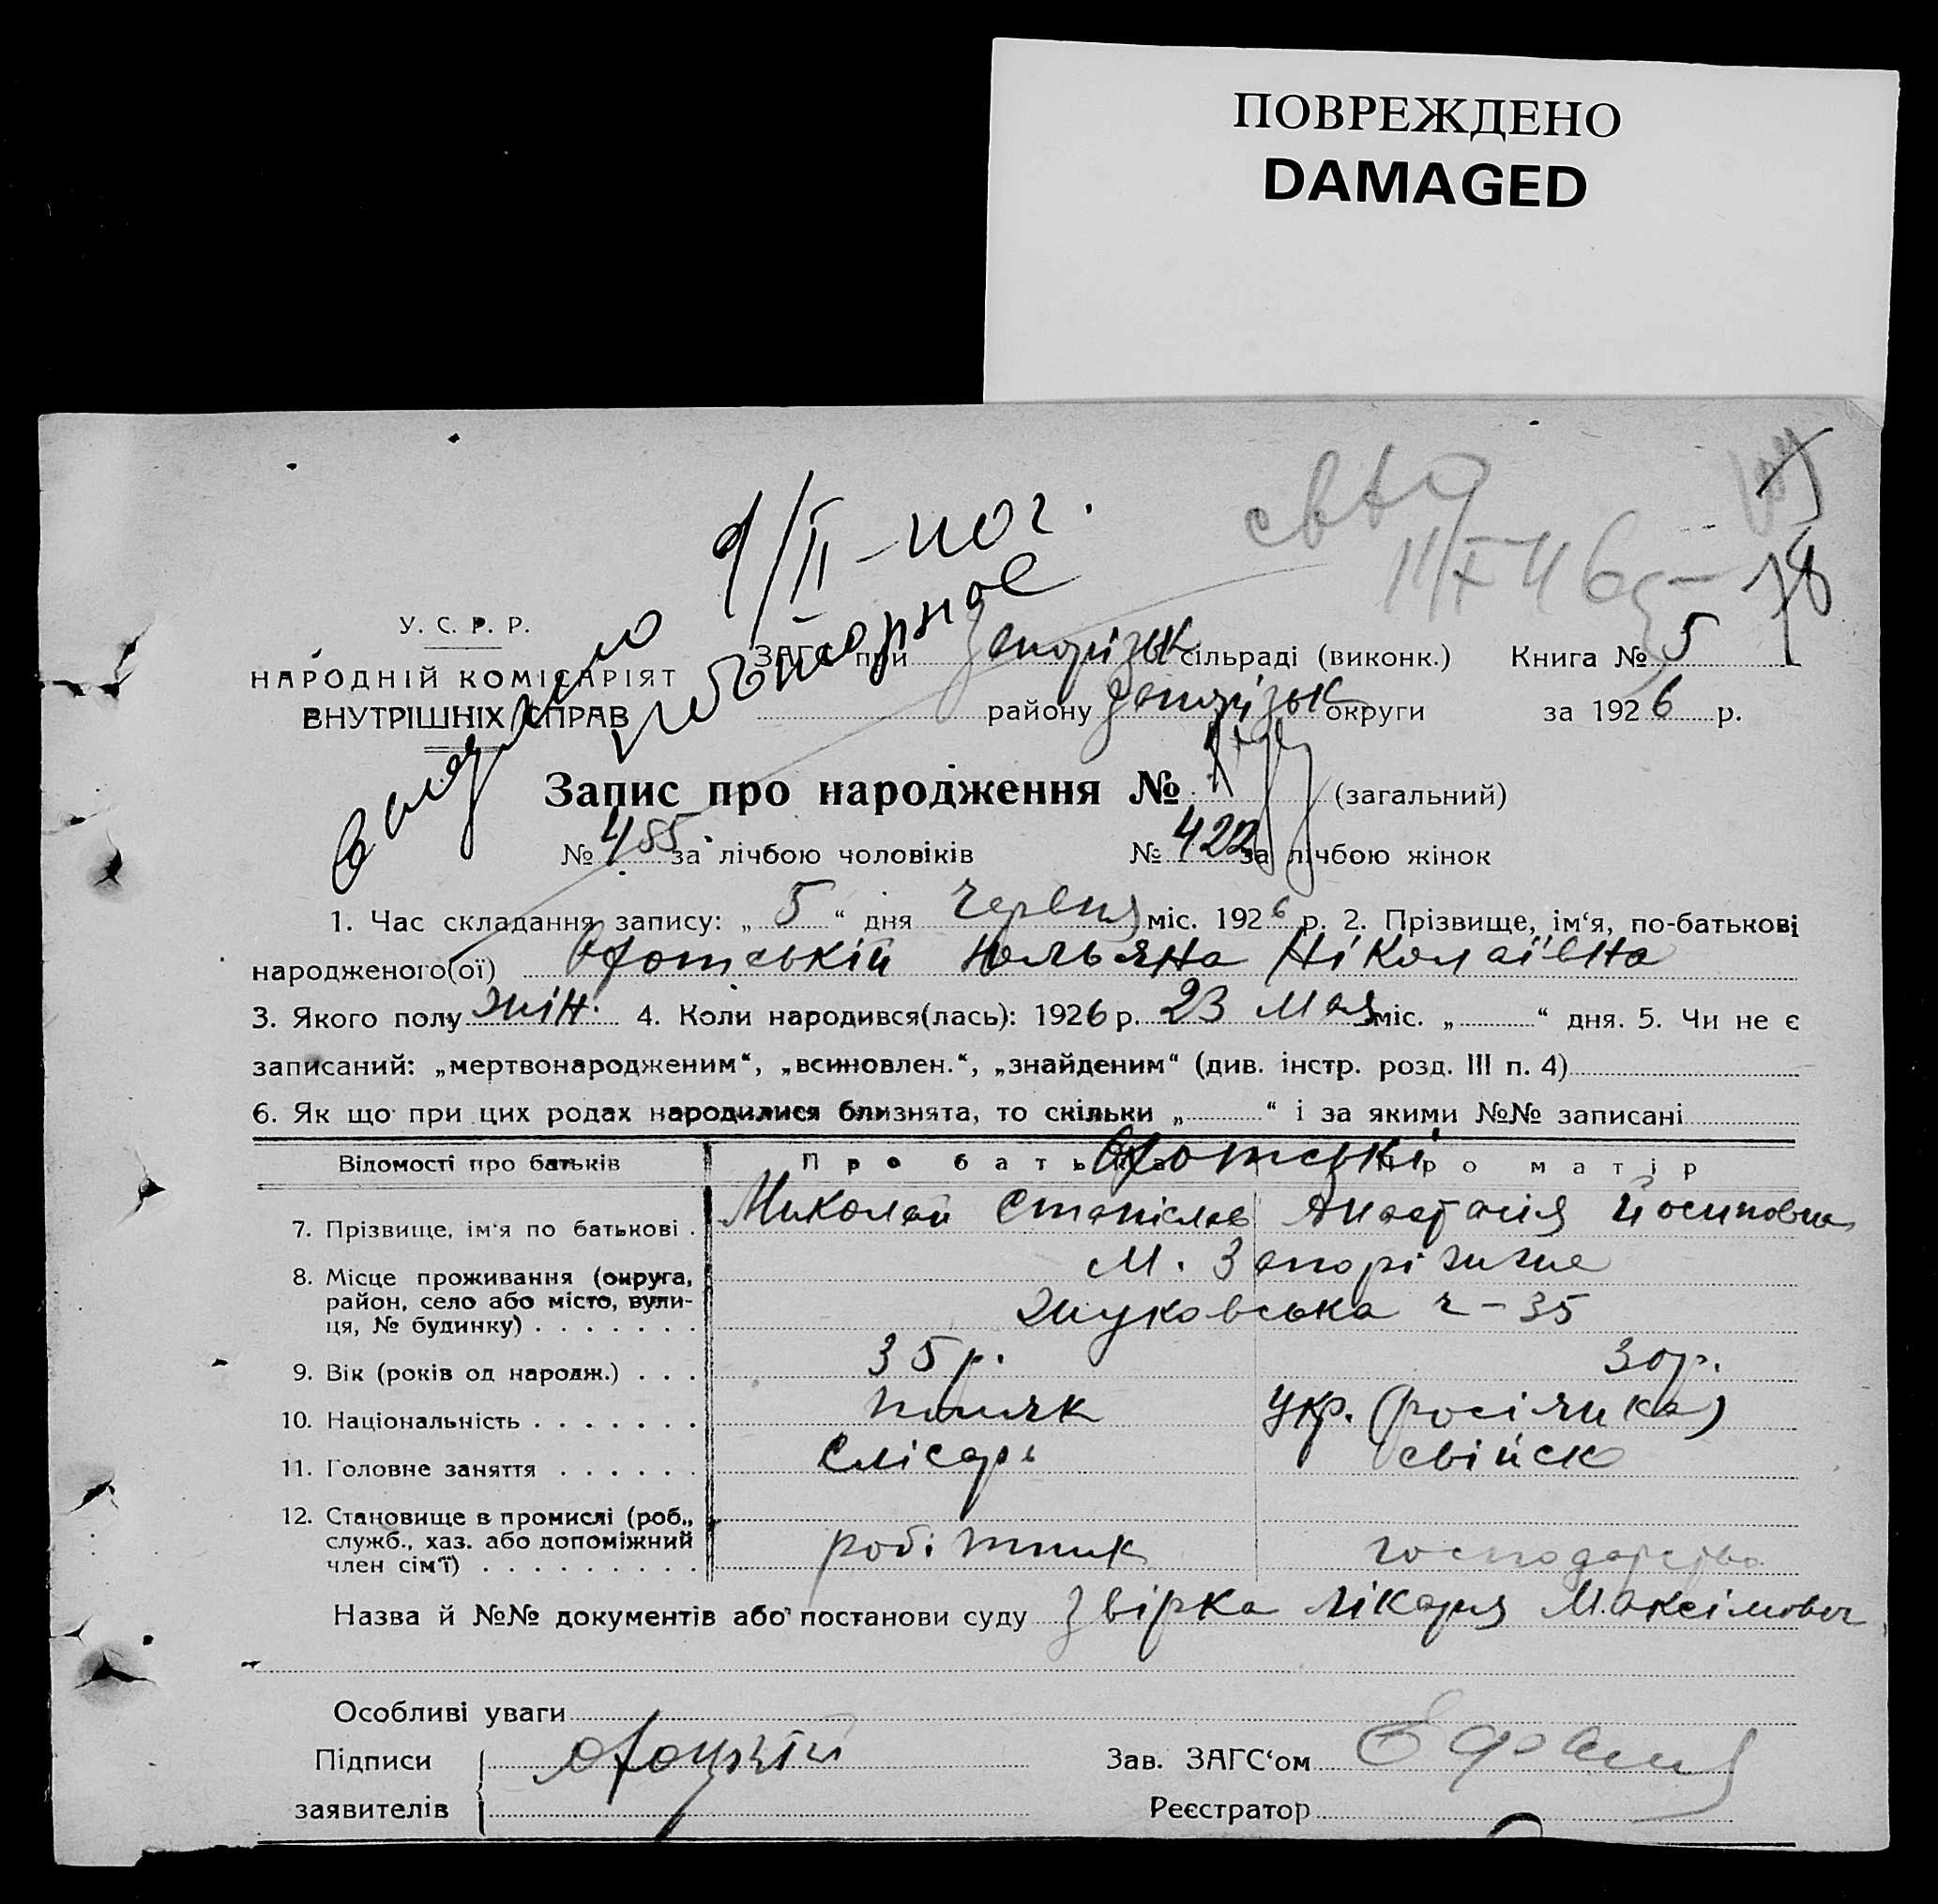 ПОВРЕЖДЕНО
DAMAGED
1/II-
У. С. Р. Р.
НАРОДНІЙ КОМІСАРІЯТ
ВНУТРІШНІХ СПРАВ
Выдано повторное
ЗАГС при Запорізьк сільраді (виконк.) Книга № 5
району Запорізьк округи за 1926 р.
Запис про народження № (загальний)
№ 455 за лічбою чоловіків № 422 за лічбою жінок
1. Час складання запису: „ 5 “ дня Червня міс. 1926 р. 2. Прізвище, ім‘я, по-батькові
народженого(ої) Юльяна Ніколаївна
3. Якого полу жін. 4. Коли народився(лась): 1926 р. 23 Мая міс. „ “ дня. 5. Чи не є
записаний: „мертвонародженим“, „всиновлен.“, „знайденим“ (див. інстр. розд. III п. 4)
6. Як що при цих родах народилися близнята, то скільки „ “ і за якими №№ записані
Відомості про батьків Про батька Про матір
7. Прізвище, ім‘я по батькові . Миколай Станіслав Анастасия Йосиповна
8. Місце проживання (округа, М. Запоріжжє
район, село або місто, вули-
ця, № будинку) . . . . . . . Жуковська ч-35
9. Вік (років од народж.) . . . 35 р. 30 р.
10. Національність . . . . . . . поляк Укр. (росіянка)
11. Головне заняття . . . . . . Слісарь свійск
12. Становище в промислі (роб.,
служб., хаз. або допоміжний
член сім‘ї) . . . . . . . . . робітник господарство
Назва й №№ документів або постанови суду Звірка лікаря Максімович
Особливі уваги
Підписи Зав. ЗАГС‘ом
заявителів Реєстратор